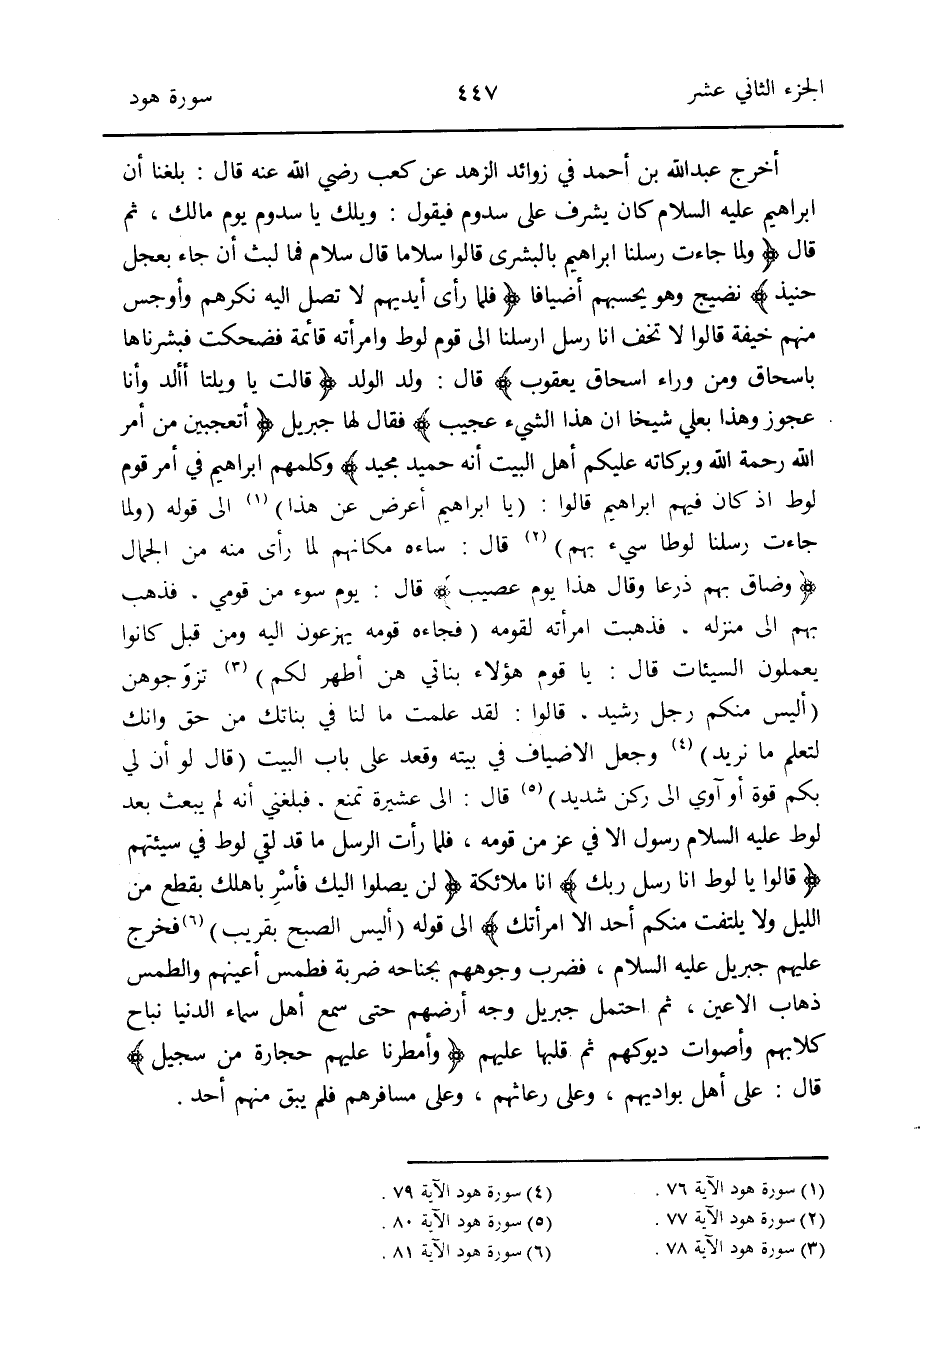 الجزء الثاني عشر ٤٤٧ سورة هود
أخرج عبدالله بن أحمد في زوائد الزهد عن كعب رضي الله عنه قال : بلغنا أن
ابراهيم عليه السلام كان يشرف على سدوم فيقول : ويلك يا سدوم يوم مالك ، ثم
قال ﴿ ولما جاءت رسلنا ابراهيم بالبشرى قالوا سلاما قال سلام فما لبث أن جاء بعجل
حنيذ ﴾ نضيج وهو يحسبهم أضيافا ﴿ فلما رأى أيديهم لا تصل اليه نكرهم وأوجس
منهم خيفة قالوا لا تخف انا رسل ارسلنا الى قوم لوط وامرأته قائمة فضحكت فبشرناها
باسحاق ومن وراء اسحاق يعقوب ﴾ قال : ولد الولد ﴿ قالت يا ويلتا أألد وأنا
عجوز وهذا بعلي شيخا ان هذا الشيء عجيب ﴾ فقال لها جبريل ﴿ أتعجبين من أمر
الله رحمة الله وبركاته عليكم أهل البيت أنه حميد مجيد ﴾ وكلمهم ابراهيم في أمر قوم
لوط اذ كان فيهم ابراهيم قالوا : (يا ابراهيم أعرض عن هذا) (١) الى قوله (ولما
جاءت رسلنا لوطا سيء بهم) (٢) قال : ساءه مكانهم لما رأى منه من الجمال
﴿ وضاق بهم ذرعا وقال هذا يوم عصيب ﴾ قال : يوم سوء من قومي . فذهب
بهم الى منزله . فذهبت امرأته لقومه ( فجاءه قومه يهزعون اليه ومن قبل كانوا
يعملون السيئات قال : يا قوم هؤلاء بناتي هن أطهر لكم ) (٣) تزوّجوهن
(أليس منكم رجل رشيد . قالوا : لقد علمت ما لنا في بناتك من حق وانك
لتعلم ما نريد) (٤) وجعل الاضياف في بيته وقعد على باب البيت (قال لو أن لي
بكم قوة أو آوي الى ركن شديد) (٥) قال : الى عشيرة تمنع . فبلغني أنه لم يبعث بعد
لوط عليه السلام رسول الا في عز من قومه ، فلما رأت الرسل ما قد لقي لوط في سيئتهم
﴿ قالوا يا لوط انا رسل ربك ﴾ انا ملائكة ﴿ لن يصلوا اليك فأسْرِ باهلك بقطع من
الليل ولا يلتفت منكم أحد الا امرأتك ﴾ الى قوله (أليس الصبح بقريب) (٦) فخرج
عليهم جبريل عليه السلام ، فضرب وجوههم بجناحه ضربة فطمس أعينهم والطمس
ذهاب الاعين ، ثم احتمل جبريل وجه أرضهم حتى سمع أهل سماء الدنيا نباح
كلابهم وأصوات ديوكهم ثم قلبها عليهم ﴿ وأمطرنا عليهم حجارة من سجيل ﴾
قال : على أهل بواديهم ، وعلى رعاثهم ، وعلى مسافرهم فلم يبق منهم أحد .
(١) سورة هود الآية ٧٦ . (٤) سورة هود الآية ٧٩ .
(٢) سورة هود الآية ٧٧ . (٥) سورة هود الآية ٨٠ .
(٣) سورة هود الآية ٧٨ . (٦) سورة هود الآية ٨١ .